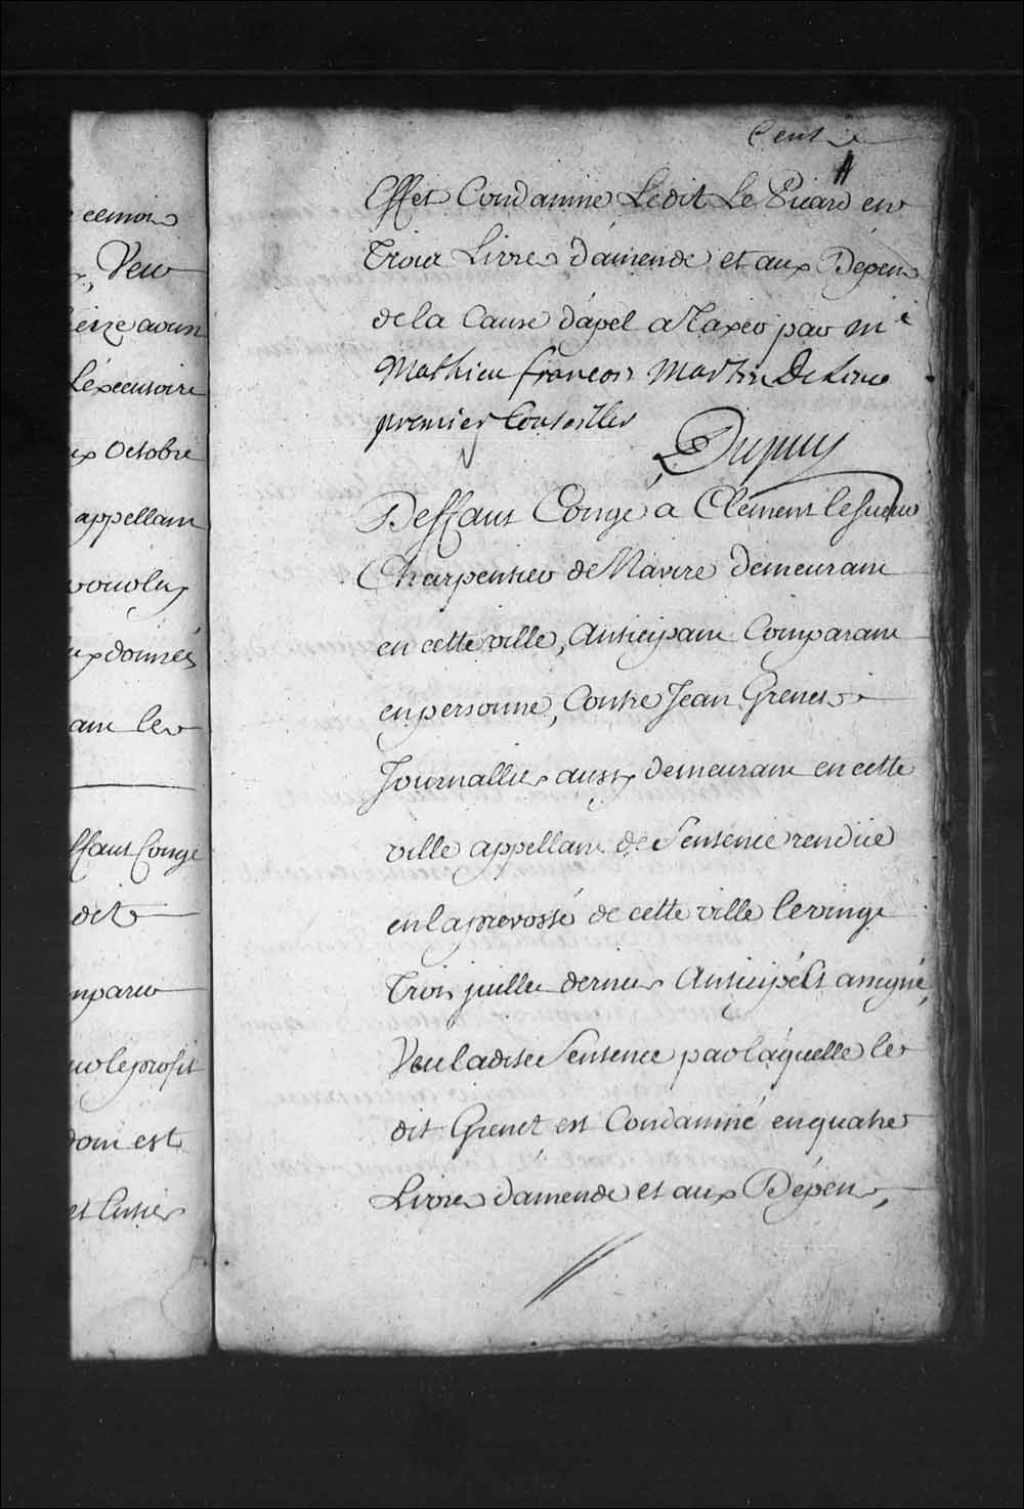 cemois
Veu
seize aoust
L'executoire
ux Octobre
appellant
voulu
ux donnés
ant le
ffaut Congé
dit
mparu
le profit
dont est
et l'intié
Cent
Effet Condamne Ledit Le Picard en
Trois Livres d'amende et aux Dépens
de la Cause d'apel a Taxer par me
Mathieu françois Martin De Lino
premier Conseiller
Dupuy
Deffaut Congé a Clement lesueur
Charpentier de Navire demeurant
en cette ville, Anticipant Comparant
en personne, Contre Jean Grenet
Journallier aussy demeurant en cette
ville appellant de Sentence rendüe
en la prevosté de cette ville le vingt
Trois juillet dernier Anticipé Et assigné,
Veu ladite Sentence par laquelle le
dit Grenet est Condamné en quatre
Livres d'amende et aux Dépens,